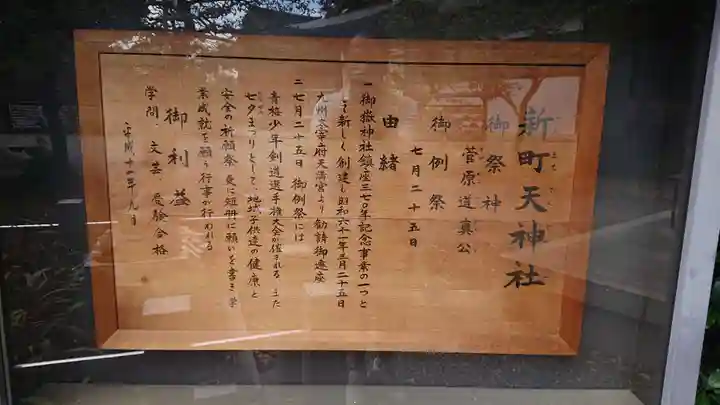 新町天神社
御祭神
菅原道真公
御例祭
七月二十五日
由緒
一御嶽神社鎮座三七〇年記念事業の一つと
して新しく創建し昭和六十一年三月二十五日
九州太宰府天満宮より勧請御遷座
二七月二十五日御例祭には
青梅少年剣道選手権大会が催される また
七夕まつりとして、地域子供達の健康と
安全の祈願祭 更に短冊に願いを書き学
業成就を願う行事が行われる
御利益
学問、文芸 受験合格
平成十一年九月